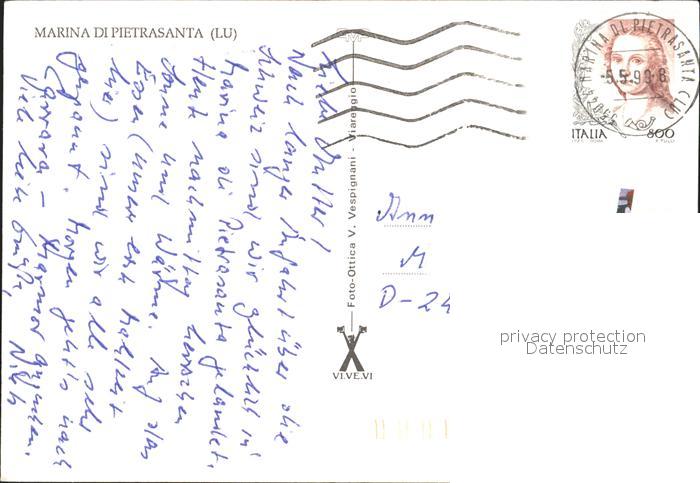 MARINA DI PIETRASANTA (LU)
Liebe Mutter!
Nach langer Anfahrt über die
Schweiz sind wir glücklich in
Marina di Pietrasanta gelandet.
Heut nachmittag herrschen
Sonne und Wärme. Auf das
Essen (unser erst Mahlzeit
hie) sind wir alle sehr
gespannt. Morgen geht's nach
Carrara – Marmor gucken.
Viele liebe Grüße,
Foto-Ottica V. Vespignani - Viareggio
VI.VE.VI
Ann
M
D-24
MARINA DI PIETRASANTA (LU)
-5.5.99-8
55044
ITALIA
800
privacy protection
Datenschutz